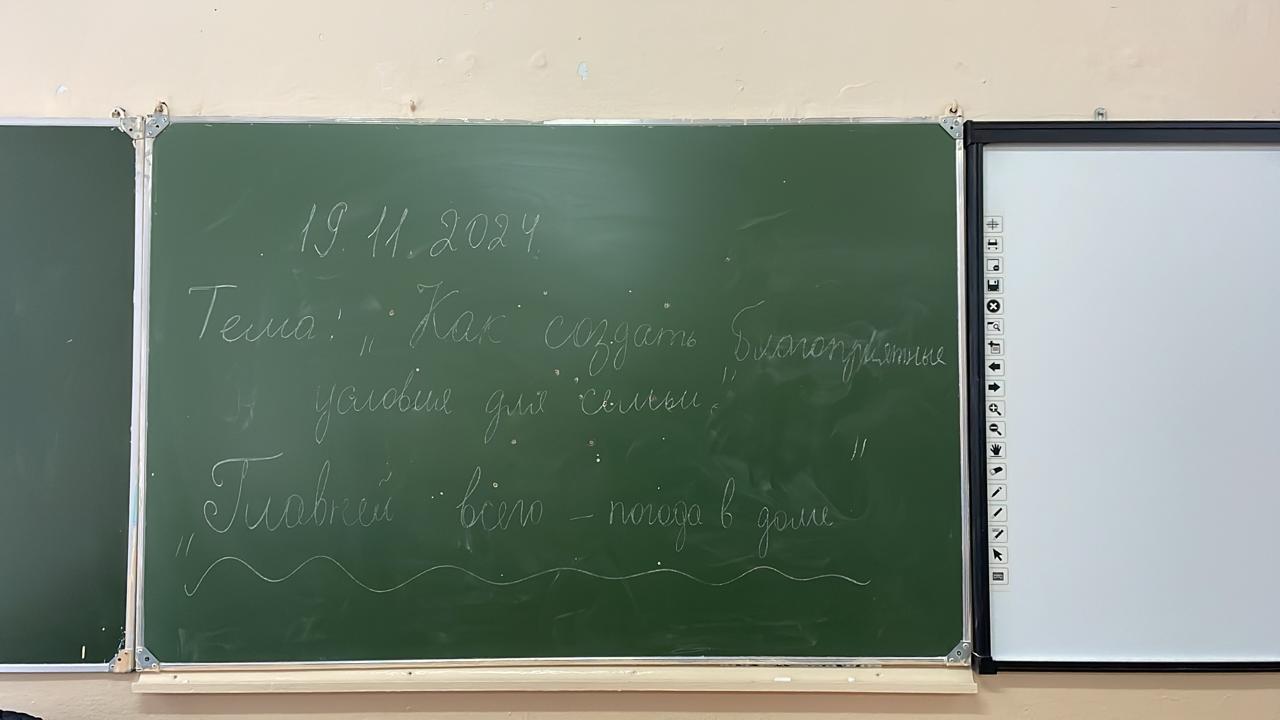 19.11.2024.
Тема: „Как создать благоприятные
условия для семьи."
„Главней всего – погода в доме"